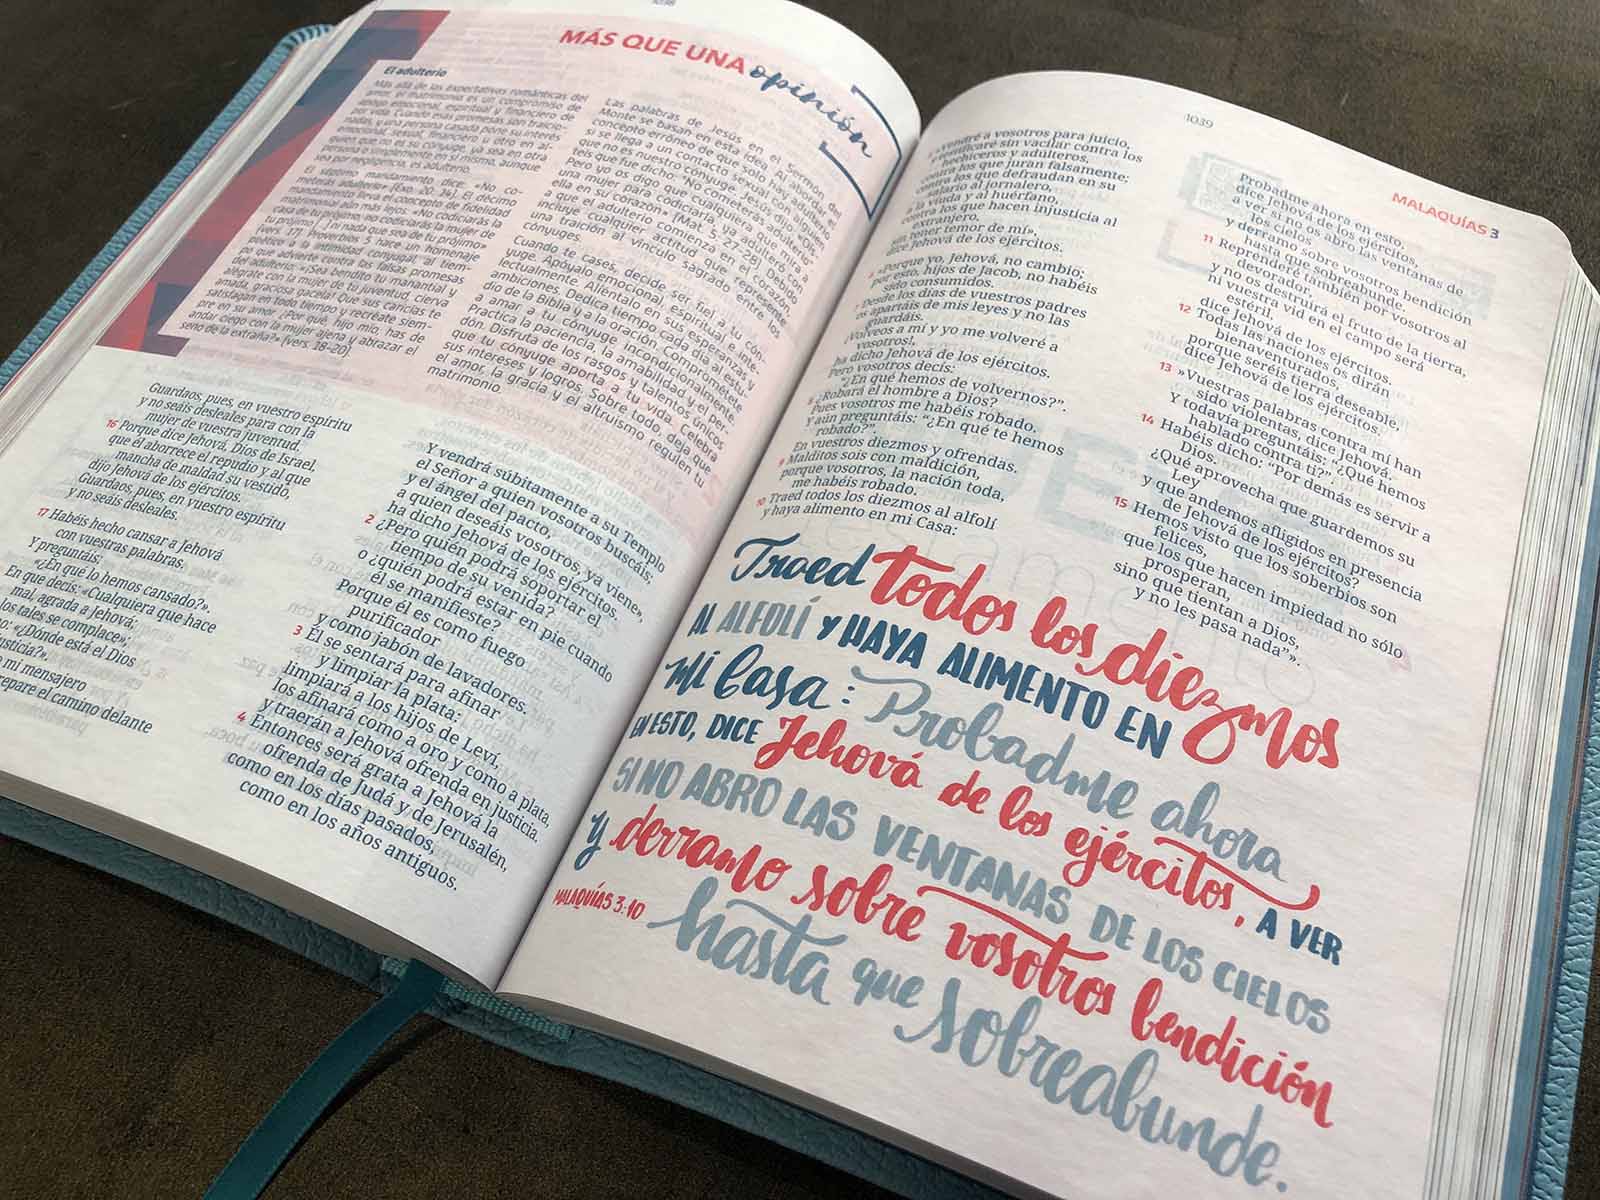 1038
MÁS QUE UNA opinión
El adulterio
Más allá de las expectativas románticas del
amor, el matrimonio es un compromiso de
apoyo emocional, espiritual y financiero de
por vida. Cuando esas promesas son traicio-
nadas, y una persona casada pone su interés
emocional, sexual, financiero u otro en al-
guien que no es su cónyuge, ya sea en otra
persona o simplemente en sí mismo, aunque
sea por negligencia, es adulterio.
El séptimo mandamiento dice: «No co-
meterás adulterio» (Éxo. 20. 14). El décimo
mandamiento eleva el concepto de fidelidad
matrimonial aún más lejos: «No codiciarás la
casa de tu prójimo, no codiciarás la mujer de
tu prójimo, ni nada que sea de tu prójimo»
(vers. 17). Proverbios 5 hace un homenaje
poético a la intimidad conyugal, al tiem-
po que advierte contra las falsas promesas
del adulterio: «¡Sea bendito tu manantial y
alégrate con la mujer de tu juventud, cierva
amada, graciosa gacela! Que sus caricias te
satisfagan en todo tiempo y recréate siem-
pre en su amor. ¿Por qué, hijo mío, has de
andar ciego con la mujer ajena y abrazar el
seno de la extraña?» (vers. 18-20).
Las palabras de Jesús en el Sermón del
Monte se basan en esta idea. Al abordar el
concepto erróneo de que solo hay adulterio
si se llega a un contacto sexual con alguien
que no es nuestro cónyuge, Jesús dijo: «Oís-
teis que fue dicho: "No cometerás adulterio".
Pero yo os digo que cualquiera que mira a
una mujer para codiciarla, ya adulteró con
ella en su corazón» (Mat. 5: 27-28). Debido a
que el adulterio comienza en el corazón,
incluye cualquier actitud que represente
una traición al vínculo sagrado entre los
cónyuges.
Cuando te cases, decide ser fiel a tu cón-
yuge. Apóyalo emocional, espiritual e inte-
lectualmente. Aliéntalo en sus esperanzas y
ambiciones. Dedica tiempo cada día al estu-
dio de la Biblia y a la oración. Comprométete
a amar a tu cónyuge incondicionalmente.
Practica la paciencia, la amabilidad y el per-
dón. Disfruta de los rasgos y talentos únicos
que tu cónyuge aporta a tu vida. Celebra
sus intereses y logros. Sobre todo, deja que
el amor, la gracia y el altruismo reguen tu
matrimonio.
Guardaos, pues, en vuestro espíritu
y no seáis desleales para con la
mujer de vuestra juventud.
16 Porque dice Jehová, Dios de Israel,
que él aborrece el repudio y al que
mancha de maldad su vestido,
dijo Jehová de los ejércitos.
Guardaos, pues, en vuestro espíritu
y no seáis desleales.
17 Habéis hecho cansar a Jehová
con vuestras palabras.
Y preguntáis:
«¿En qué lo hemos cansado?».
En que decís: «Cualquiera que hace
mal, agrada a Jehová;
los tales se complace»;
o: «¿Dónde está el Dios
justicia?».
mi mensajero
prepare el camino delante
Y vendrá súbitamente a su Templo
el Señor a quien vosotros buscáis;
y el ángel del pacto,
a quien deseáis vosotros, ya viene,
ha dicho Jehová de los ejércitos.
2 ¿Pero quién podrá soportar el
tiempo de su venida?
o ¿quién podrá estar en pie cuando
él se manifieste?
Porque él es como fuego
purificador
y como jabón de lavadores.
3 Él se sentará para afinar
y limpiar la plata:
limpiará a los hijos de Leví,
los afinará como a oro y como a plata,
y traerán a Jehová ofrenda en justicia.
4 Entonces será grata a Jehová la
ofrenda de Judá y de Jerusalén,
como en los días pasados,
como en los años antiguos.
1039
MALAQUÍAS 3
vendré a vosotros para juicio,
y testificaré sin vacilar contra los
hechiceros y adúlteros,
contra los que juran falsamente;
contra los que defraudan en su
salario al jornalero,
a la viuda y al huérfano,
contra los que hacen injusticia al
extranjero,
sin tener temor de mí»,
dice Jehová de los ejércitos.
«Porque yo, Jehová, no cambio;
por esto, hijos de Jacob, no habéis
sido consumidos.
7 Desde los días de vuestros padres
os apartáis de mis leyes y no las
guardáis.
¡Volveos a mí y yo me volveré a
vosotros!,
ha dicho Jehová de los ejércitos.
Pero vosotros decís:
"¿En qué hemos de volvernos?".
8 ¿Robará el hombre a Dios?
Pues vosotros me habéis robado.
Y aún preguntáis: "¿En qué te hemos
robado?".
En vuestros diezmos y ofrendas.
9 Malditos sois con maldición,
porque vosotros, la nación toda,
me habéis robado.
10 Traed todos los diezmos al alfolí
y haya alimento en mi Casa:
Probadme ahora en esto,
dice Jehová de los ejércitos,
a ver si no os abro las ventanas de
los cielos
y derramo sobre vosotros bendición
hasta que sobreabunde.
11 Reprenderé también por vosotros al
devorador,
y no os destruirá el fruto de la tierra,
ni vuestra vid en el campo será
estéril,
dice Jehová de los ejércitos.
12 Todas las naciones os dirán
bienaventurados,
porque seréis tierra deseable,
dice Jehová de los ejércitos.
13 »Vuestras palabras contra mí han
sido violentas, dice Jehová.
Y todavía preguntáis: "¿Qué hemos
hablado contra ti?".
14 Habéis dicho: "Por demás es servir a
Dios.
¿Qué aprovecha que guardemos su
Ley
y que andemos afligidos en presencia
de Jehová de los ejércitos?
15 Hemos visto que los soberbios son
felices,
que los que hacen impiedad no sólo
prosperan,
sino que tientan a Dios,
y no les pasa nada"».
Traed todos los diezmos
AL ALFOLÍ Y HAYA ALIMENTO EN
mi Casa: Probadme ahora
EN ESTO, DICE Jehová de los ejércitos, A VER
SI NO ABRO LAS VENTANAS DE LOS CIELOS
y derramo sobre vosotros bendición
MALAQUÍAS 3:10 hasta que sobreabunde.